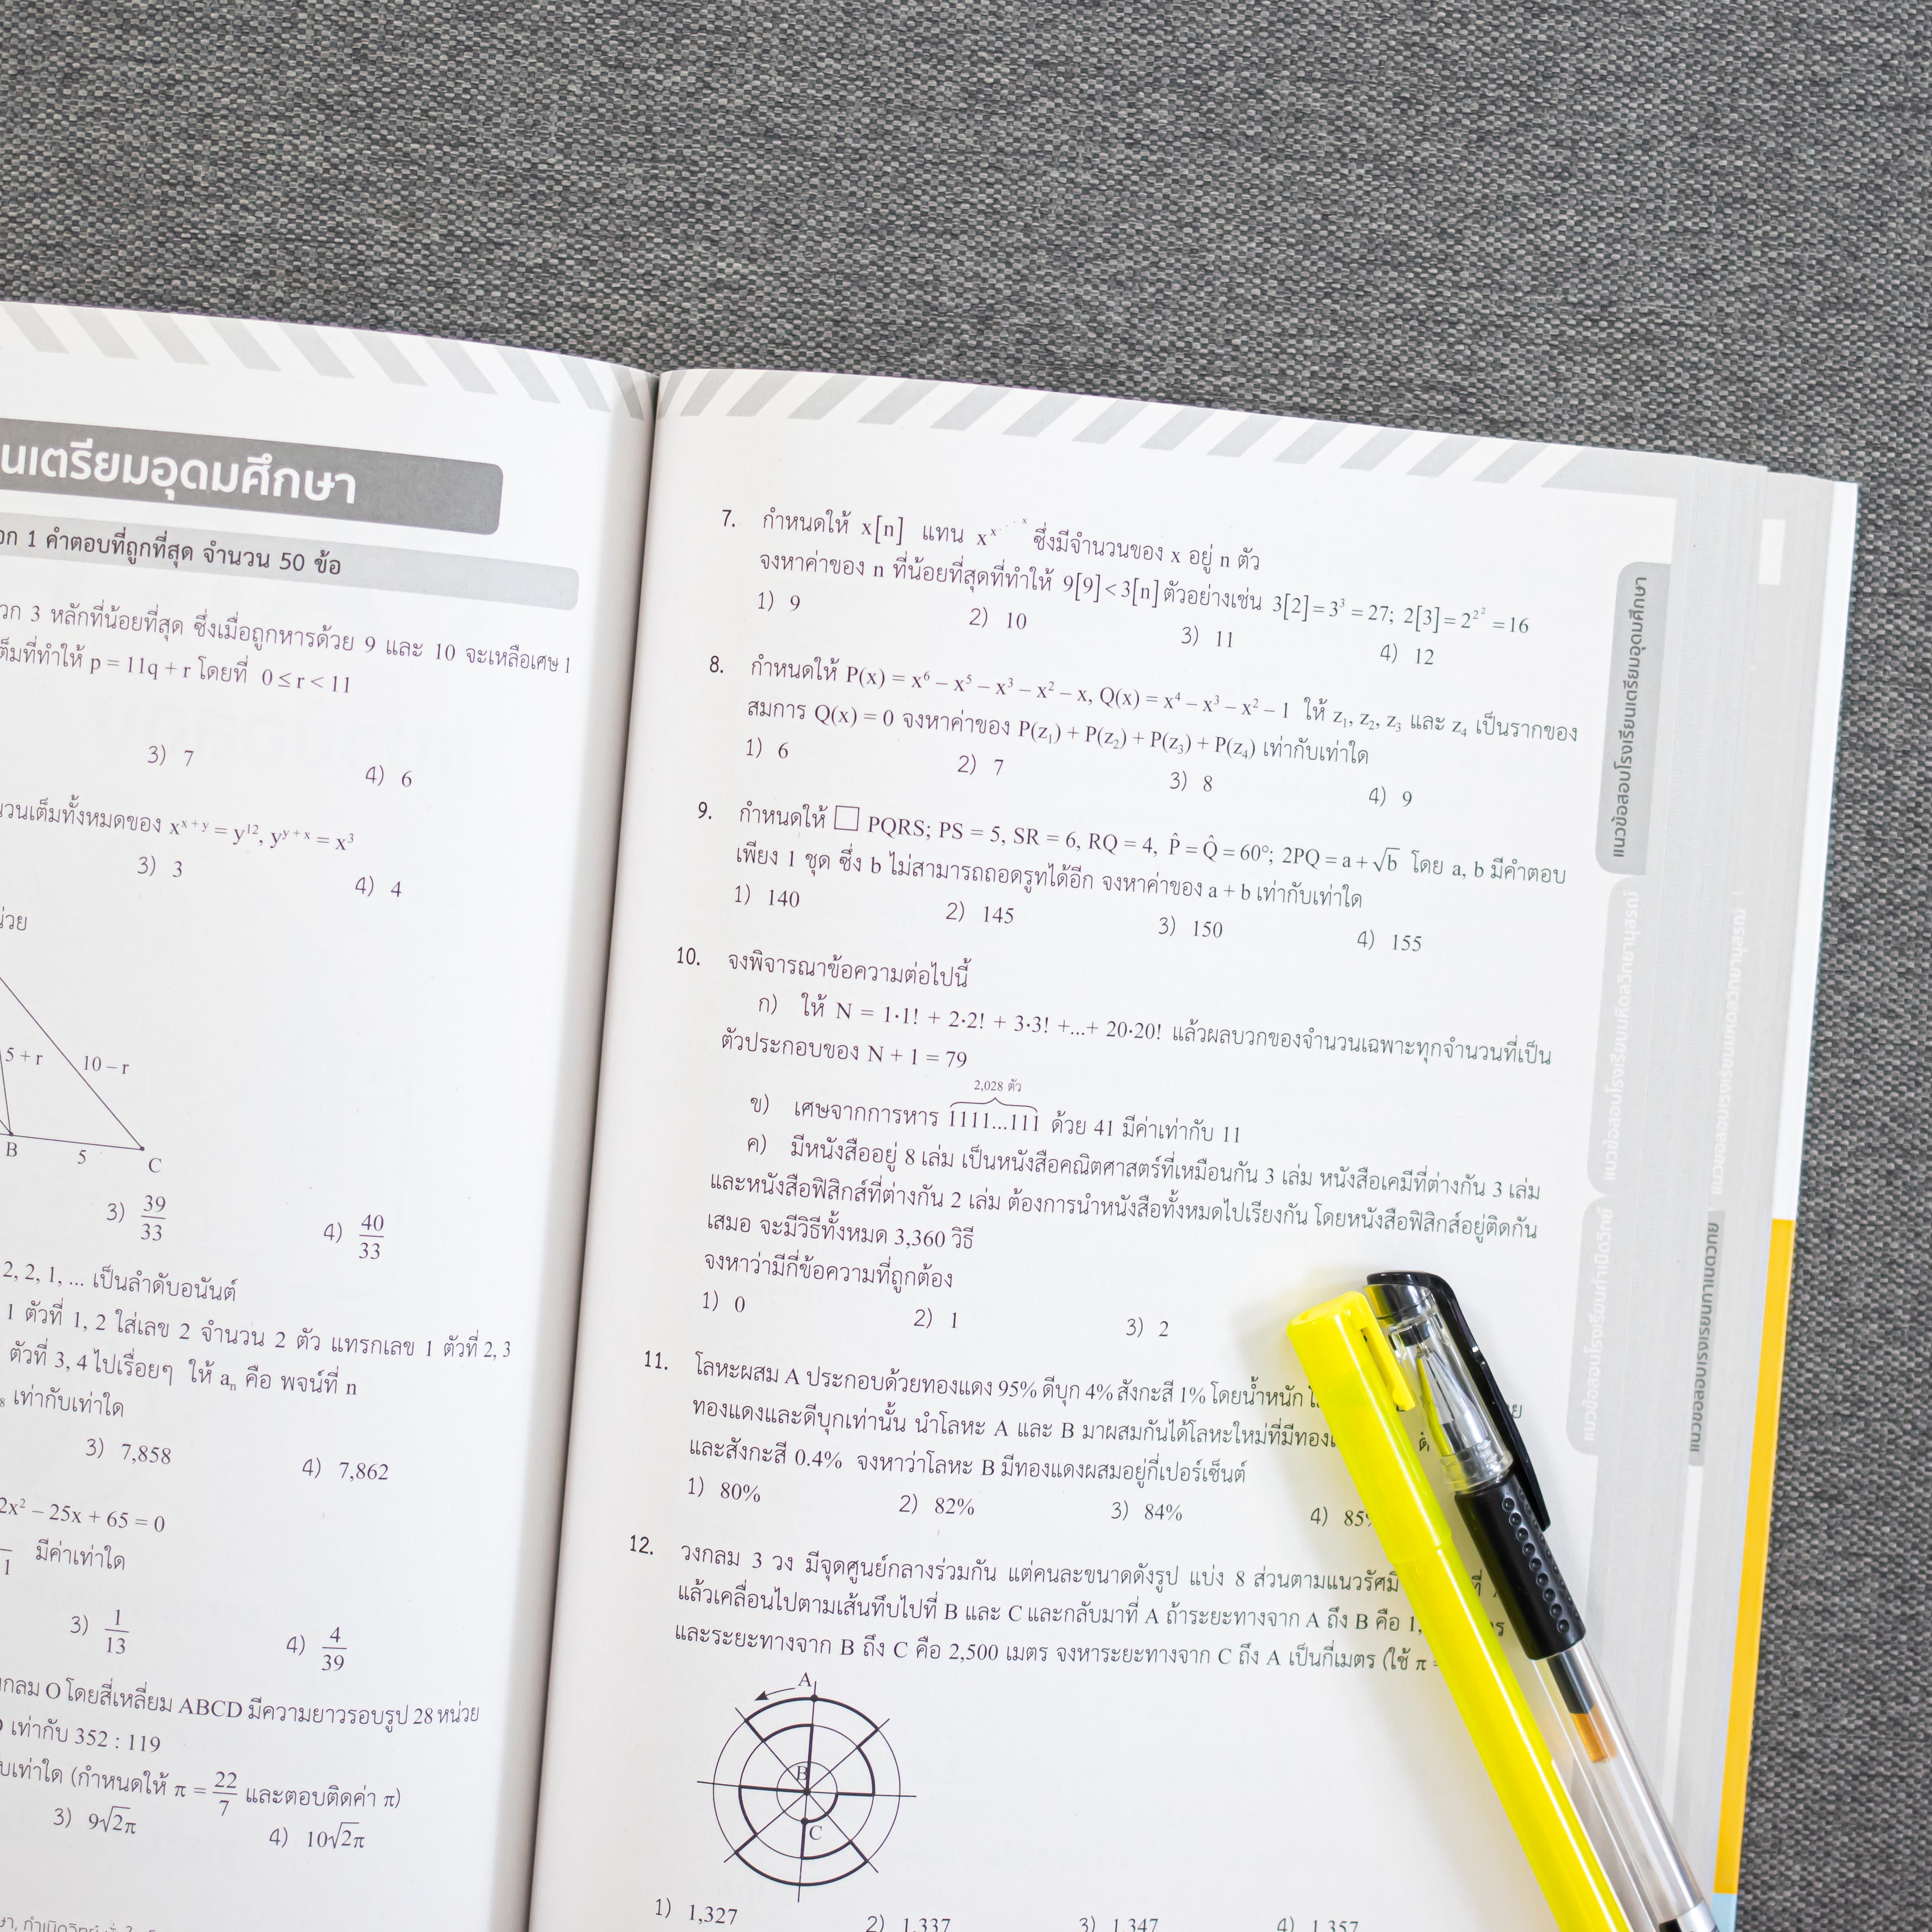 นเตรียมอุดมศึกษา
1 คำตอบที่ถูกที่สุด จำนวน 50 ข้อ
3 หลักที่น้อยที่สุด ซึ่งเมื่อถูกหารด้วย 9 และ 10 จะเหลือเศษ 1
ต็มที่ทำให้ p = 11q + r โดยที่ 0 ≤ r < 11
3) 7 4) 6
นวนเต็มทั้งหมดของ x^(x+y) = y^12, y^(y+x) = x^3
3) 3 4) 4
5 + r 10 – r
B 5 C
3) 39/33 4) 40/33
2, 2, 1, ... เป็นลำดับอนันต์
1 ตัวที่ 1, 2 ใส่เลข 2 จำนวน 2 ตัว แทรกเลข 1 ตัวที่ 2, 3
ตัวที่ 3, 4 ไปเรื่อยๆ ให้ aₙ คือ พจน์ที่ n
เท่ากับเท่าใด
3) 7,858 4) 7,862
2x² – 25x + 65 = 0
1 มีค่าเท่าใด
3) 1/13 4) 4/39
กลม O โดยสี่เหลี่ยม ABCD มีความยาวรอบรูป 28 หน่วย
เท่ากับ 352 : 119
บเท่าใด (กำหนดให้ π = 22/7 และตอบติดค่า π)
3) 9√2π 4) 10√2π
7. กำหนดให้ x[n] แทน x^x^⋰^x ซึ่งมีจำนวนของ x อยู่ n ตัว
จงหาค่าของ n ที่น้อยที่สุดที่ทำให้ 9[9] < 3[n] ตัวอย่างเช่น 3[2] = 3³ = 27; 2[3] = 2^2^2 = 16
1) 9 2) 10 3) 11 4) 12
8. กำหนดให้ P(x) = x⁶ – x⁵ – x³ – x² – x, Q(x) = x⁴ – x³ – x² – 1 ให้ z₁, z₂, z₃ และ z₄ เป็นรากของ
สมการ Q(x) = 0 จงหาค่าของ P(z₁) + P(z₂) + P(z₃) + P(z₄) เท่ากับเท่าใด
1) 6 2) 7 3) 8 4) 9
9. กำหนดให้ □ PQRS; PS = 5, SR = 6, RQ = 4, P̂ = Q̂ = 60°; 2PQ = a + √b โดย a, b มีคำตอบ
เพียง 1 ชุด ซึ่ง b ไม่สามารถถอดรูทได้อีก จงหาค่าของ a + b เท่ากับเท่าใด
1) 140 2) 145 3) 150 4) 155
10. จงพิจารณาข้อความต่อไปนี้
ก) ให้ N = 1·1! + 2·2! + 3·3! +...+ 20·20! แล้วผลบวกของจำนวนเฉพาะทุกจำนวนที่เป็น
ตัวประกอบของ N + 1 = 79
2,028 ตัว
ข) เศษจากการหาร 1111...111 ด้วย 41 มีค่าเท่ากับ 11
ค) มีหนังสืออยู่ 8 เล่ม เป็นหนังสือคณิตศาสตร์ที่เหมือนกัน 3 เล่ม หนังสือเคมีที่ต่างกัน 3 เล่ม
และหนังสือฟิสิกส์ที่ต่างกัน 2 เล่ม ต้องการนำหนังสือทั้งหมดไปเรียงกัน โดยหนังสือฟิสิกส์อยู่ติดกัน
เสมอ จะมีวิธีทั้งหมด 3,360 วิธี
จงหาว่ามีกี่ข้อความที่ถูกต้อง
1) 0 2) 1 3) 2
11. โลหะผสม A ประกอบด้วยทองแดง 95% ดีบุก 4% สังกะสี 1% โดยน้ำหนัก
ทองแดงและดีบุกเท่านั้น นำโลหะ A และ B มาผสมกันได้โลหะใหม่ที่มีทอง
และสังกะสี 0.4% จงหาว่าโลหะ B มีทองแดงผสมอยู่กี่เปอร์เซ็นต์
1) 80% 2) 82% 3) 84% 4) 85%
12. วงกลม 3 วง มีจุดศูนย์กลางร่วมกัน แต่คนละขนาดดังรูป แบ่ง 8 ส่วนตามแนวรัศมี
แล้วเคลื่อนไปตามเส้นทึบไปที่ B และ C และกลับมาที่ A ถ้าระยะทางจาก A ถึง B คือ 1,
และระยะทางจาก B ถึง C คือ 2,500 เมตร จงหาระยะทางจาก C ถึง A เป็นกี่เมตร (ใช้ π =
A
B
C
1) 1,327 2) 1,337 3) 1,347 4) 1,357
แนวข้อสอบโรงเรียนเตรียมอุดมศึกษา
แนวข้อสอบโรงเรียนมหิดลวิทยานุสรณ์
แนวข้อสอบโรงเรียนกำเนิดวิทย์
แนวข้อสอบโรงเรียนมหิดลวิทยานุสรณ์